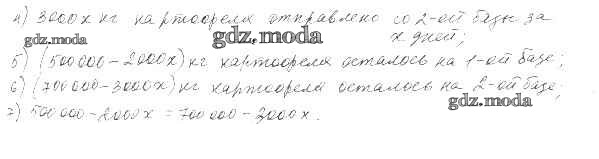 4) 3000х кг картофеля отправлено со 2-ой базы за
х дней;
gdz.moda
gdz.moda
5) (500000-2000х)кг картофеля осталось на 1-ой базе;
6) (700000-3000х)кг картофеля осталось на 2-ой базе;
gdz.moda
7) 500000-2000х = 700000-3000х.